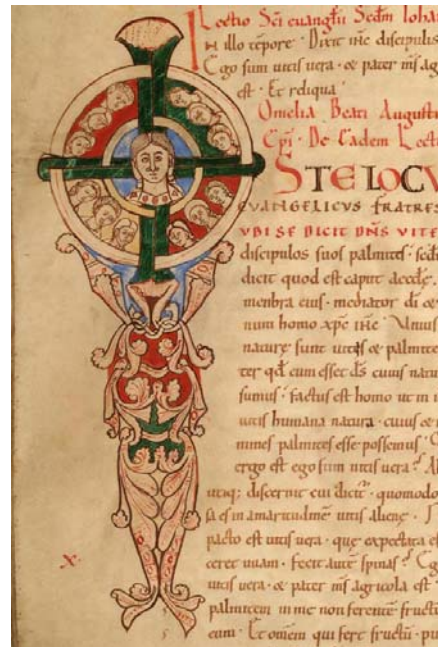 Lectio Sci̅ euang̅lii Scd̅m Ioha
IN illo te̅pore · Dixit ih̅c discipulis
Ego sum uitis uera · & pater m̅s ag
est · Et reliqua
Omelia Beati Augusti
Ep̅i · De Eadem Lecti
STE LOCV
EVANGELICVS FRATRES
VBI SE DICIT DN̅S VITE
discipulos suos palmites · scd̅
dicit quod est caput aeccłę ·
menbra eius · mediator di̅ &
num homo xp̅c ih̅c · Vnius
naturę sunt uites & palmite
ter qd̅ cum esset ds̅ cuius natu
sumus · factus est homo ut in
uitis humana natura · cuius &
mines palmites esse possemus ·
ergo est ego sum uitis uera?
utiq; discernit cui dicit · quomodo
sa es in amaritudine̅ uitis alienę ·
pacto est uitis uera · quę expectata e
ceret uuam · fecit aute̅ spinas? Eg
uitis uera · & pater m̅s agricola est
palmitem in me non ferente̅ fructu̅
eum · Et om̅em qui fert fructu̅ · pu
x ·